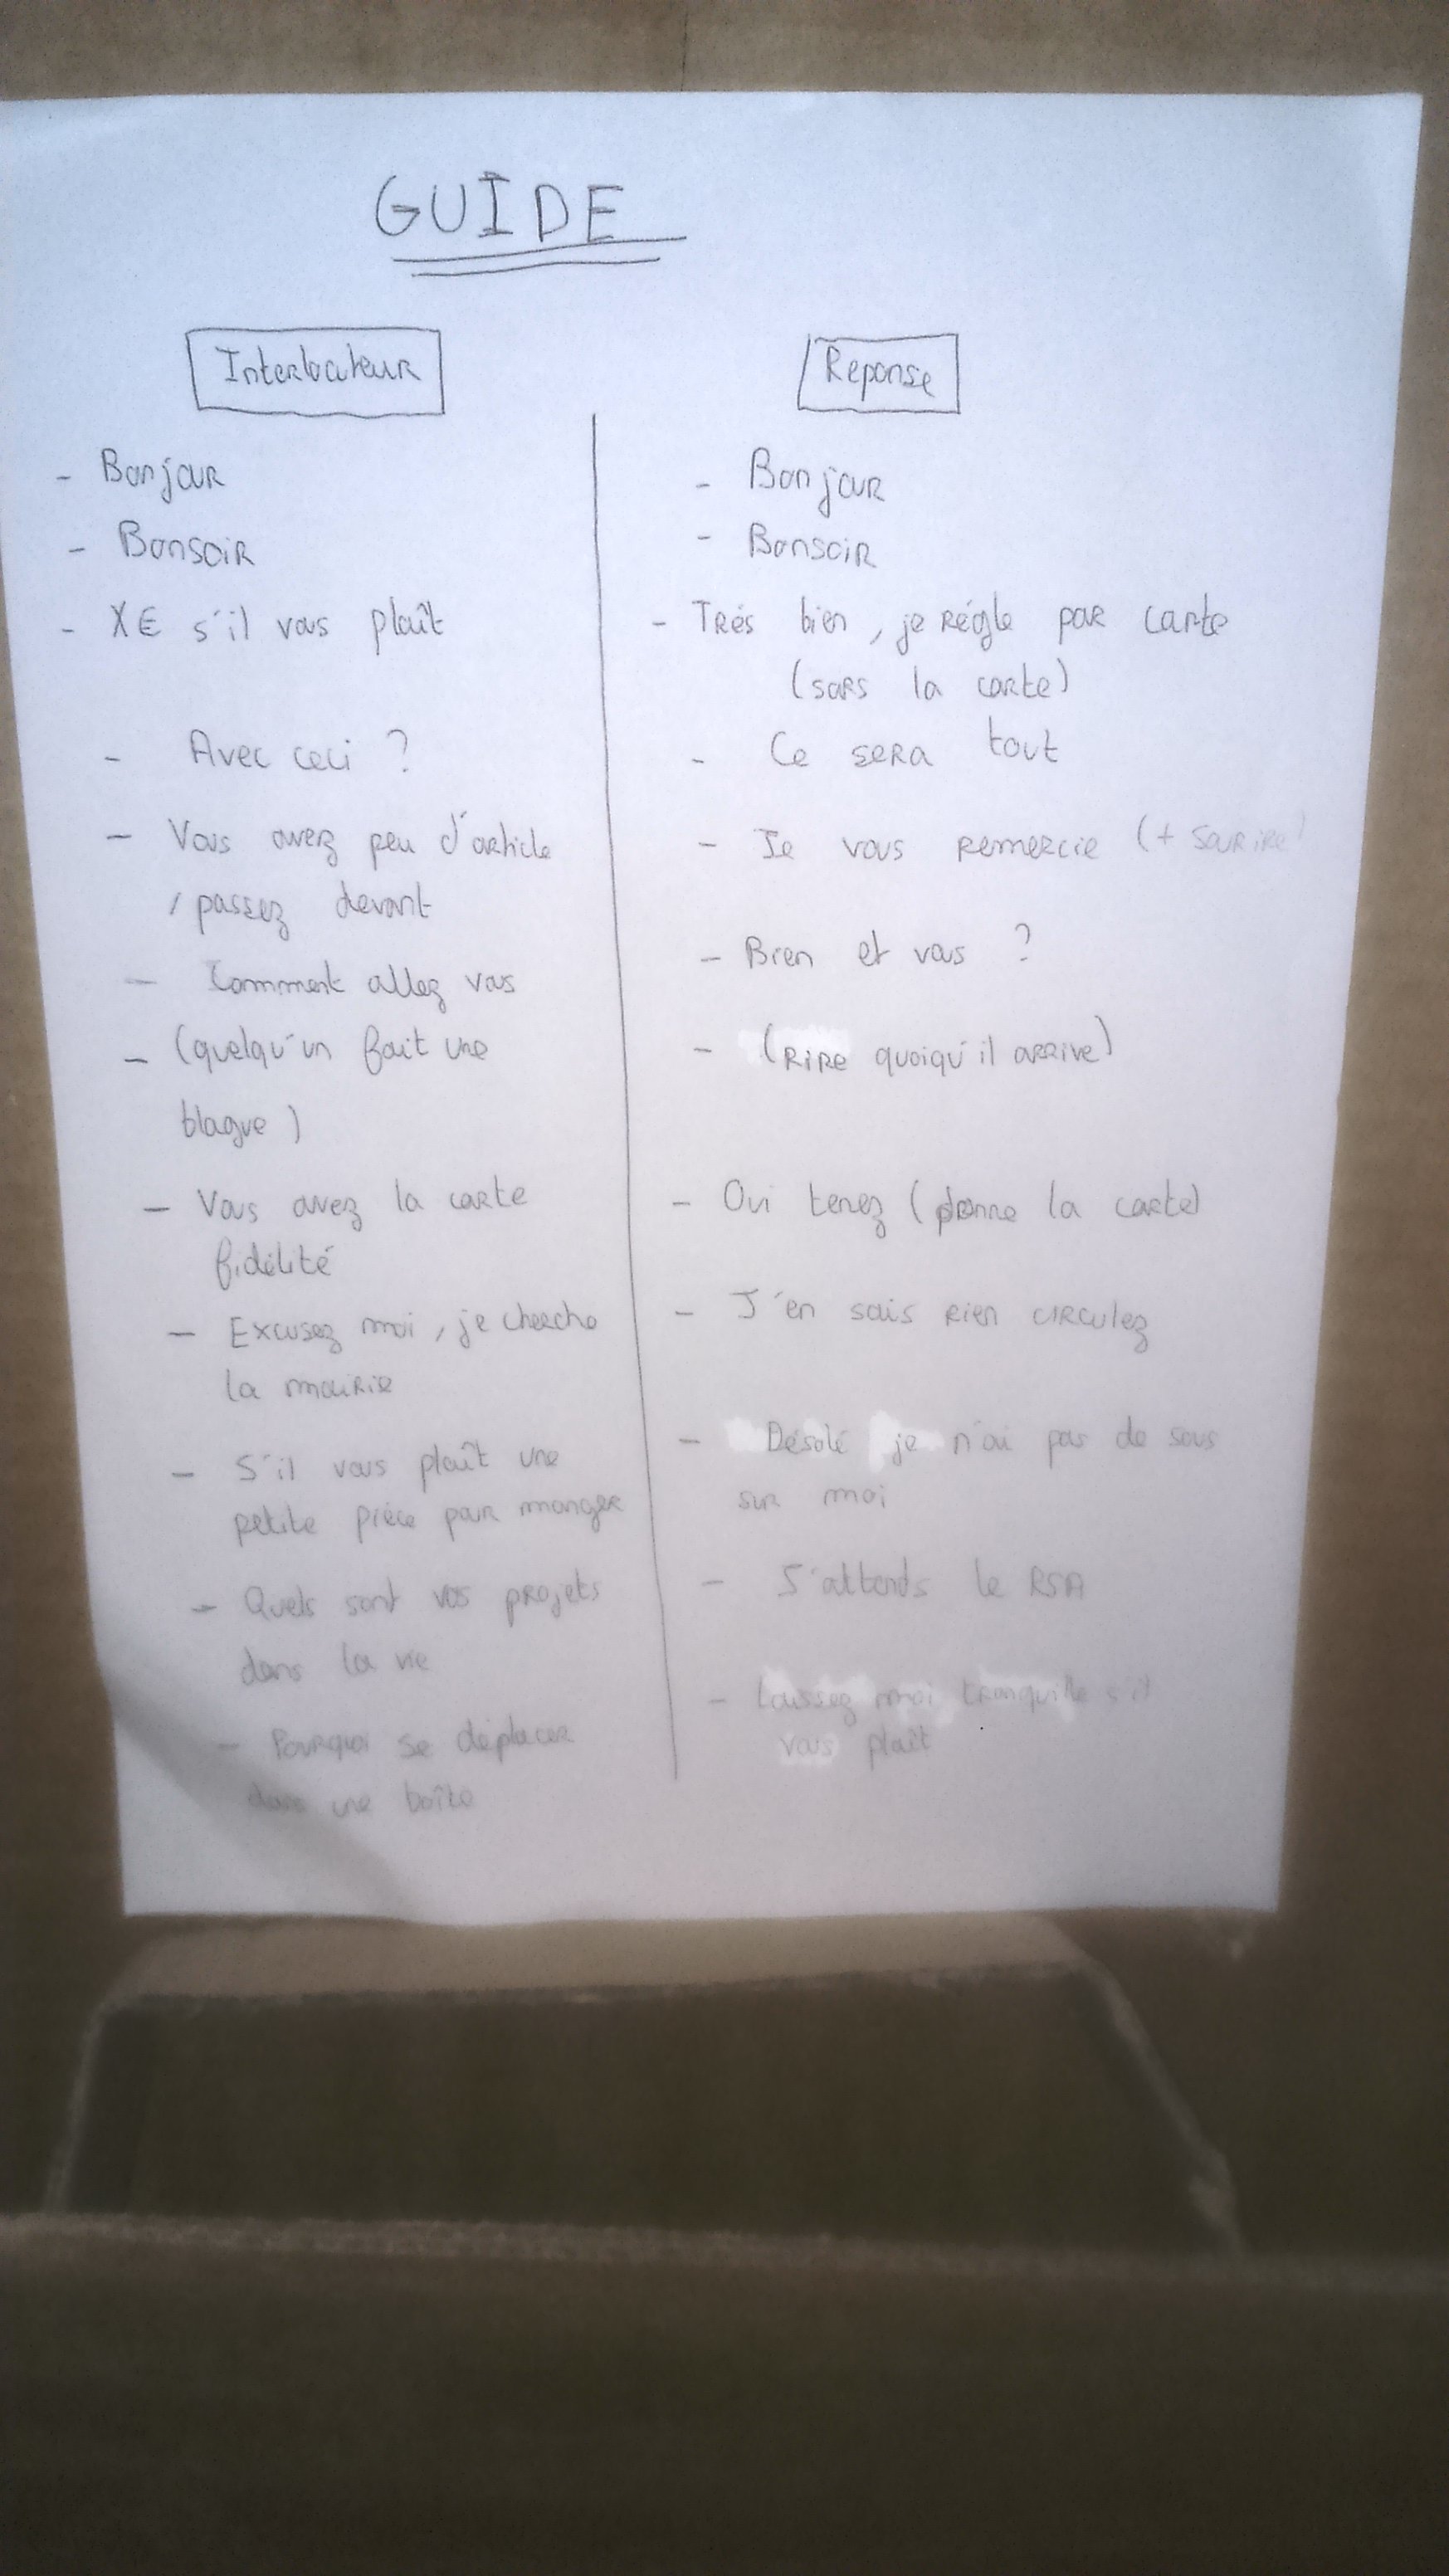 GUIDE
Interlocuteur
- Bonjour
- Bonsoir
- X€ s'il vous plaît
- Avec ceci ?
- Vous avez peu d'article
, passez devant
- Comment allez vous
- (quelqu'un fait une
blague)
- Vous avez la carte
fidélité
- Excusez moi, je cherche
la mairie
- S'il vous plaît une
petite pièce pour manger
- Quels sont vos projets
dans la vie
- Pourquoi se déplacer
dans une boîte
Reponse
- Bonjour
- Bonsoir
- Trés bien, je régle par carte
(sors la carte)
- Ce sera tout
- Je vous remercie (+ sourire)
- Bien et vous ?
- (Rire quoiqu'il arrive)
- Oui tenez (donne la carte)
- J'en sais rien circulez
- Désolé je n'ai pas de sous
sur moi
- J'attends le RSA
- Laissez moi tranquille s'il
vous plaît